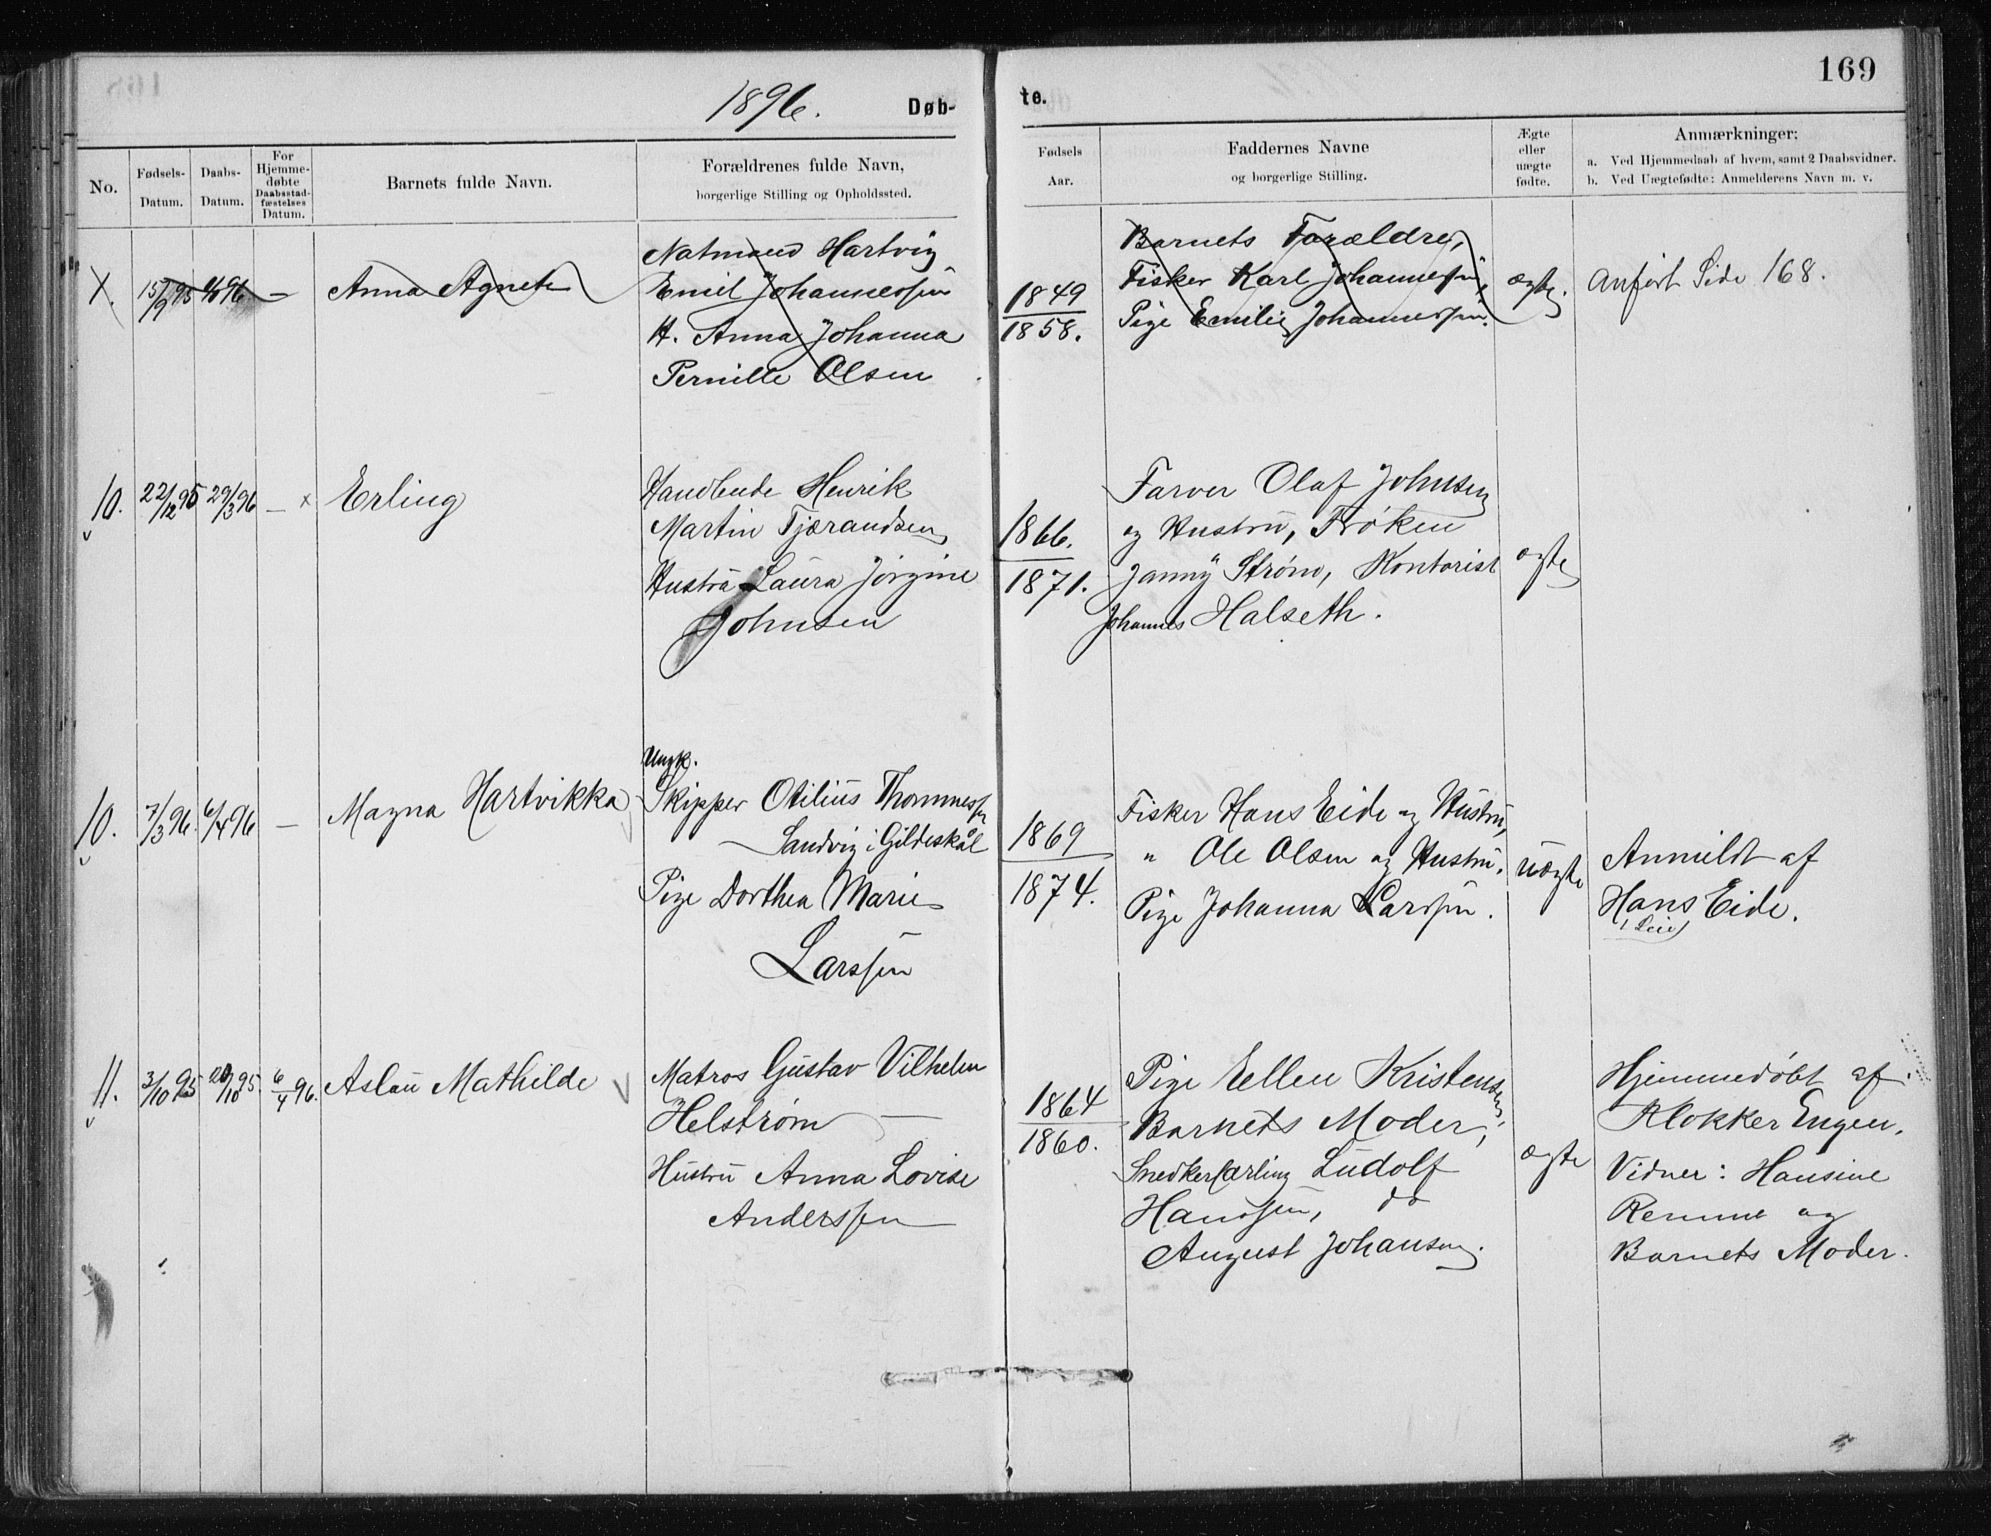 1896.
Døb-
te.
169
No.
Fødsels-
Datum.
Daabs-
Datum.
For
Hjemme-
døbte
Daabsstad-
fæstelses
Datum.
Barnets fulde Navn.
Forældrenes fulde Navn,
borgerlige Stilling og Opholdssted.
Fødsels
Aar.
Faddernes Navne
og borgerlige Stilling.
Ægte
eller
uægte
fødte.
Anmærkninger:
a. Ved Hjemmedaab af hvem, samt 2 Daabsvidner.
b. Ved Uægtefødte: Anmelderens Navn m. v.
15/9 95
Anna Agnete
Natmand Hartvig
Emil Johannessen
H. Anna Johanna
Pernille Olsen
1849
1858.
Barnets Forældre,
Fisker Karl Johannessen,
Pige Emilie Johannessen.
ægte.
Anført Side 168.
10.
22/12 95
29/3 96
—
×
Erling
Handlende Henrik
Martin Tjærandsen
Hustru Laura Jørgine
Johnsen
1866.
1871.
Farver Olaf Johnsen
og Hustru, Frøken
Janny Strøm, Kontorist
Johannes Halseth.
ægte
10.
7/3 96
6/4 96
—
Magna Hartvikka
Ungk.
Skipper Otilius Thommessen
Sandvig i Gildeskål
Pige Dorthea Marie
Larssen
1869
1874.
Fisker Hans Eide og Hustru,
" Ole Olsen og Hustru.
Pige Johanna Larssen.
uægte
Anmeldt af
Hans Eide.
11.
3/10 95
20/10 95.
6/4 96.
Aslau Mathilde
Matros Gustav Vilhelm
Helstrøm
Hustru Anna Lovise
Anderssen
1864
1860.
Pige Ellen Kristensen,
Barnets Moder,
Snedkerlærling Ludolf
Hanssen, do
August Johansen.
ægte
Hjemmedøbt af
Klokker Engen.
Vidner: Hansine
Remme og
Barnets Moder.